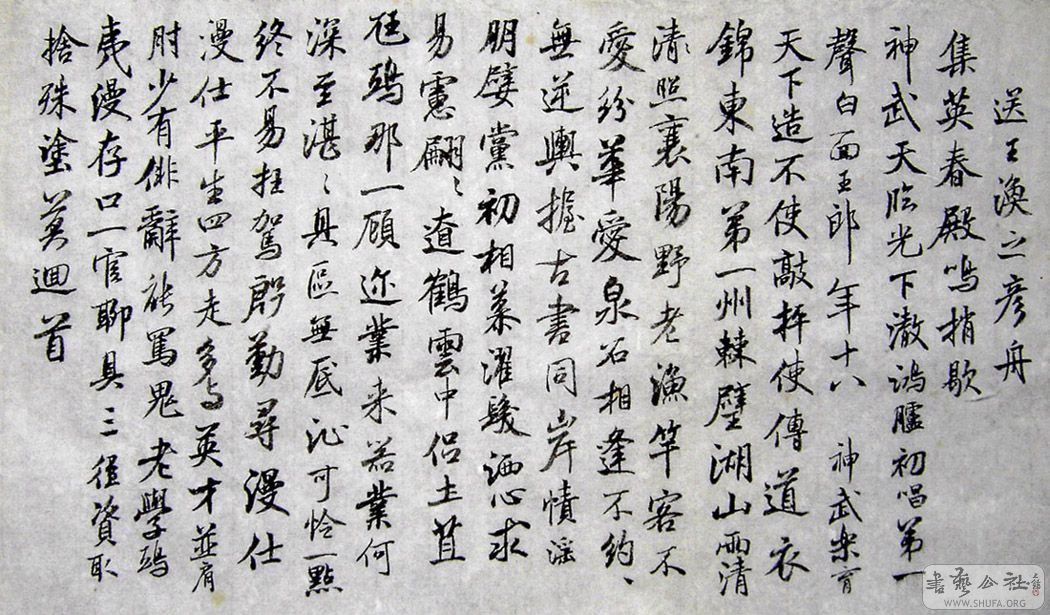 送王渙之彦舟
集英春殿鳴梢歇
神武天臨光下澈鴻臚初唱第一
聲白面王郎年十八 神武樂育
天下造不使敲枰使傳道衣
錦東南第一州棘璧湖山兩清
清照襄陽野老漁竿客不
愛紛華愛泉石相逢不約、
無逆輿握古書同岸幘淫
朋嬖黨初相慕濯髮洒心求
易慮翩〻遼鶴雲中侶土苴
尫鴟那一顧迩業来器業何
深至湛〻具區無底沚可怜一點
終不易枉駕殷勤尋漫仕
漫仕平生四方走多与英才並肩
肘少有俳辭能罵鬼老學鴟
夷漫存口一官聊具三徑資取
捨殊塗莫迴首
書藝公社
WWW.SHUFA.ORG